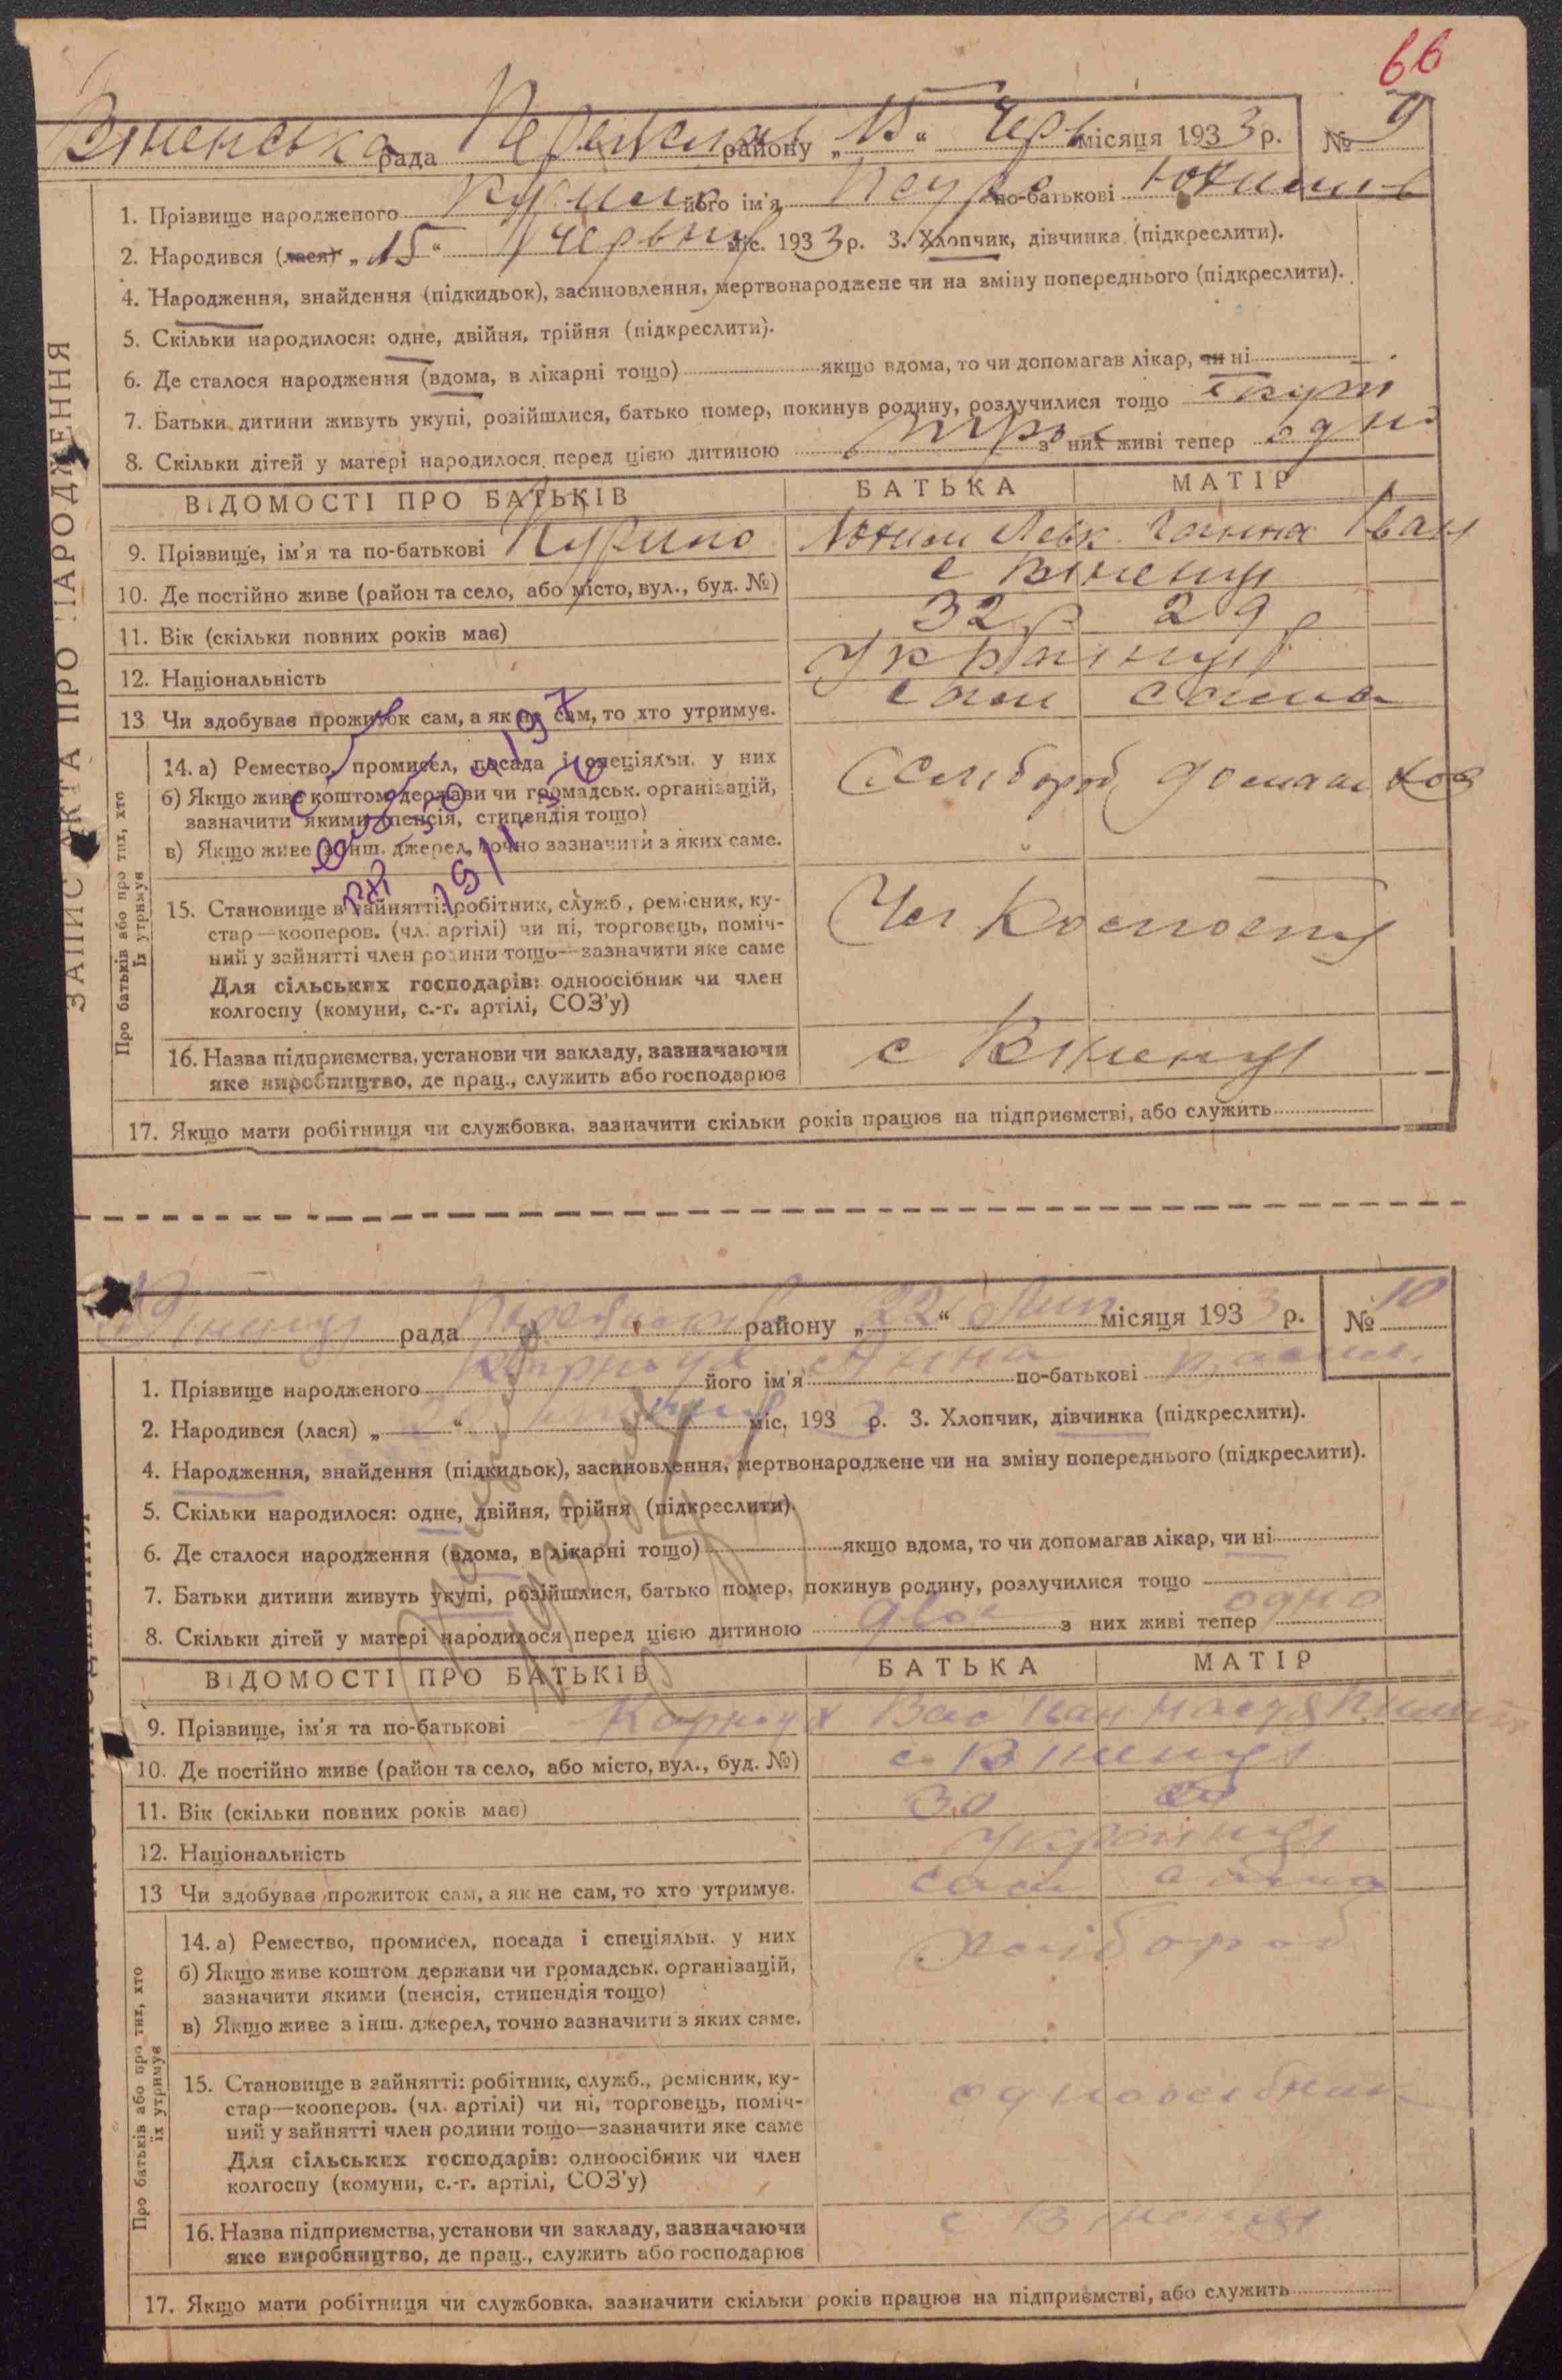 66
рада району „15“ Черв місяця 1933 р. № 9
1. Прізвище народженого його ім'я по-батькові
2. Народився (лася) „15“ червня міс. 1933 р. 3. Хлопчик, дівчинка (підкреслити).
4. Народження, знайдення (підкидьок), засиновлення, мертвонароджене чи на зміну попереднього (підкреслити).
5. Скільки народилося: одне, двійня, трійня (підкреслити).
6. Де сталося народження (вдома, в лікарні тощо) якщо вдома, то чи допомагав лікар, чи ні
7. Батьки дитини живуть укупі, розійшлися, батько помер, покинув родину, розлучилися тощо вкупі
8. Скільки дітей у матері народилося перед цією дитиною троє з них живі тепер одно
ВІДОМОСТІ ПРО БАТЬКІВ БАТЬКА МАТІР
9. Прізвище, ім'я та по-батькові Ганна Іван
10. Де постійно живе (район та село, або місто, вул., буд. №) с
11. Вік (скільки повних років має) 32 р 29 р
12. Національність Українці
13 Чи здобуває прожиток сам, а як не сам, то хто утримує. сам сама
14. а) Ремество, промисел, посада і спеціяльн. у них
б) Якщо живе коштом держави чи громадськ. організацій,
зазначити якими (пенсія, стипендія тощо)
в) Якщо живе з інш. джерел, точно зазначити з яких саме.
15. Становище в зайнятті: робітник, служб., ремісник, ку-
стар—кооперов. (чл. артілі) чи ні, торговець, поміч-
ний у зайнятті член родини тощо—зазначити яке саме
Для сільських господарів: одноосібник чи член
колгоспу (комуни, с.-г. артілі, СОЗ'у)
16. Назва підприємства, установи чи закладу, зазначаючи с
яке виробництво, де прац., служить або господарює
17. Якщо мати робітниця чи службовка, зазначити скільки років працює на підприємстві, або служить
ЗАПИС АКТА ПРО НАРОДЖЕННЯ
Про батьків або про тих, хто
їх утримує
рада району „22“ Лип місяця 1933 р. № 10
1. Прізвище народженого його ім'я Анна по-батькові
2. Народився (лася) „ “ міс. 193 р. 3. Хлопчик, дівчинка (підкреслити).
4. Народження, знайдення (підкидьок), засиновлення, мертвонароджене чи на зміну попереднього (підкреслити).
5. Скільки народилося: одне, двійня, трійня (підкреслити)
6. Де сталося народження (вдома, в лікарні тощо) якщо вдома, то чи допомагав лікар, чи ні
7. Батьки дитини живуть укупі, розійшлися, батько помер, покинув родину, розлучилися тощо
8. Скільки дітей у матері народилося перед цією дитиною двоє з них живі тепер одно
ВІДОМОСТІ ПРО БАТЬКІВ БАТЬКА МАТІР
9. Прізвище, ім'я та по-батькові Корноух Вас Іван
10. Де постійно живе (район та село, або місто, вул., буд. №) с
11. Вік (скільки повних років має) 30
12. Національність Українці
13 Чи здобуває прожиток сам, а як не сам, то хто утримує. сам сама
14. а) Ремество, промисел, посада і спеціяльн. у них хлібороб
б) Якщо живе коштом держави чи громадськ. організацій,
зазначити якими (пенсія, стипендія тощо)
в) Якщо живе з інш. джерел, точно зазначити з яких саме.
15. Становище в зайнятті: робітник, служб., ремісник, ку- одноосібник
стар—кооперов. (чл. артілі) чи ні, торговець, поміч-
ний у зайнятті член родини тощо—зазначити яке саме
Для сільських господарів: одноосібник чи член
колгоспу (комуни, с.-г. артілі, СОЗ'у)
16. Назва підприємства, установи чи закладу, зазначаючи с
яке виробництво, де прац., служить або господарює
17. Якщо мати робітниця чи службовка, зазначити скільки років працює на підприємстві, або служить
Про батьків або про тих, хто
їх утримує